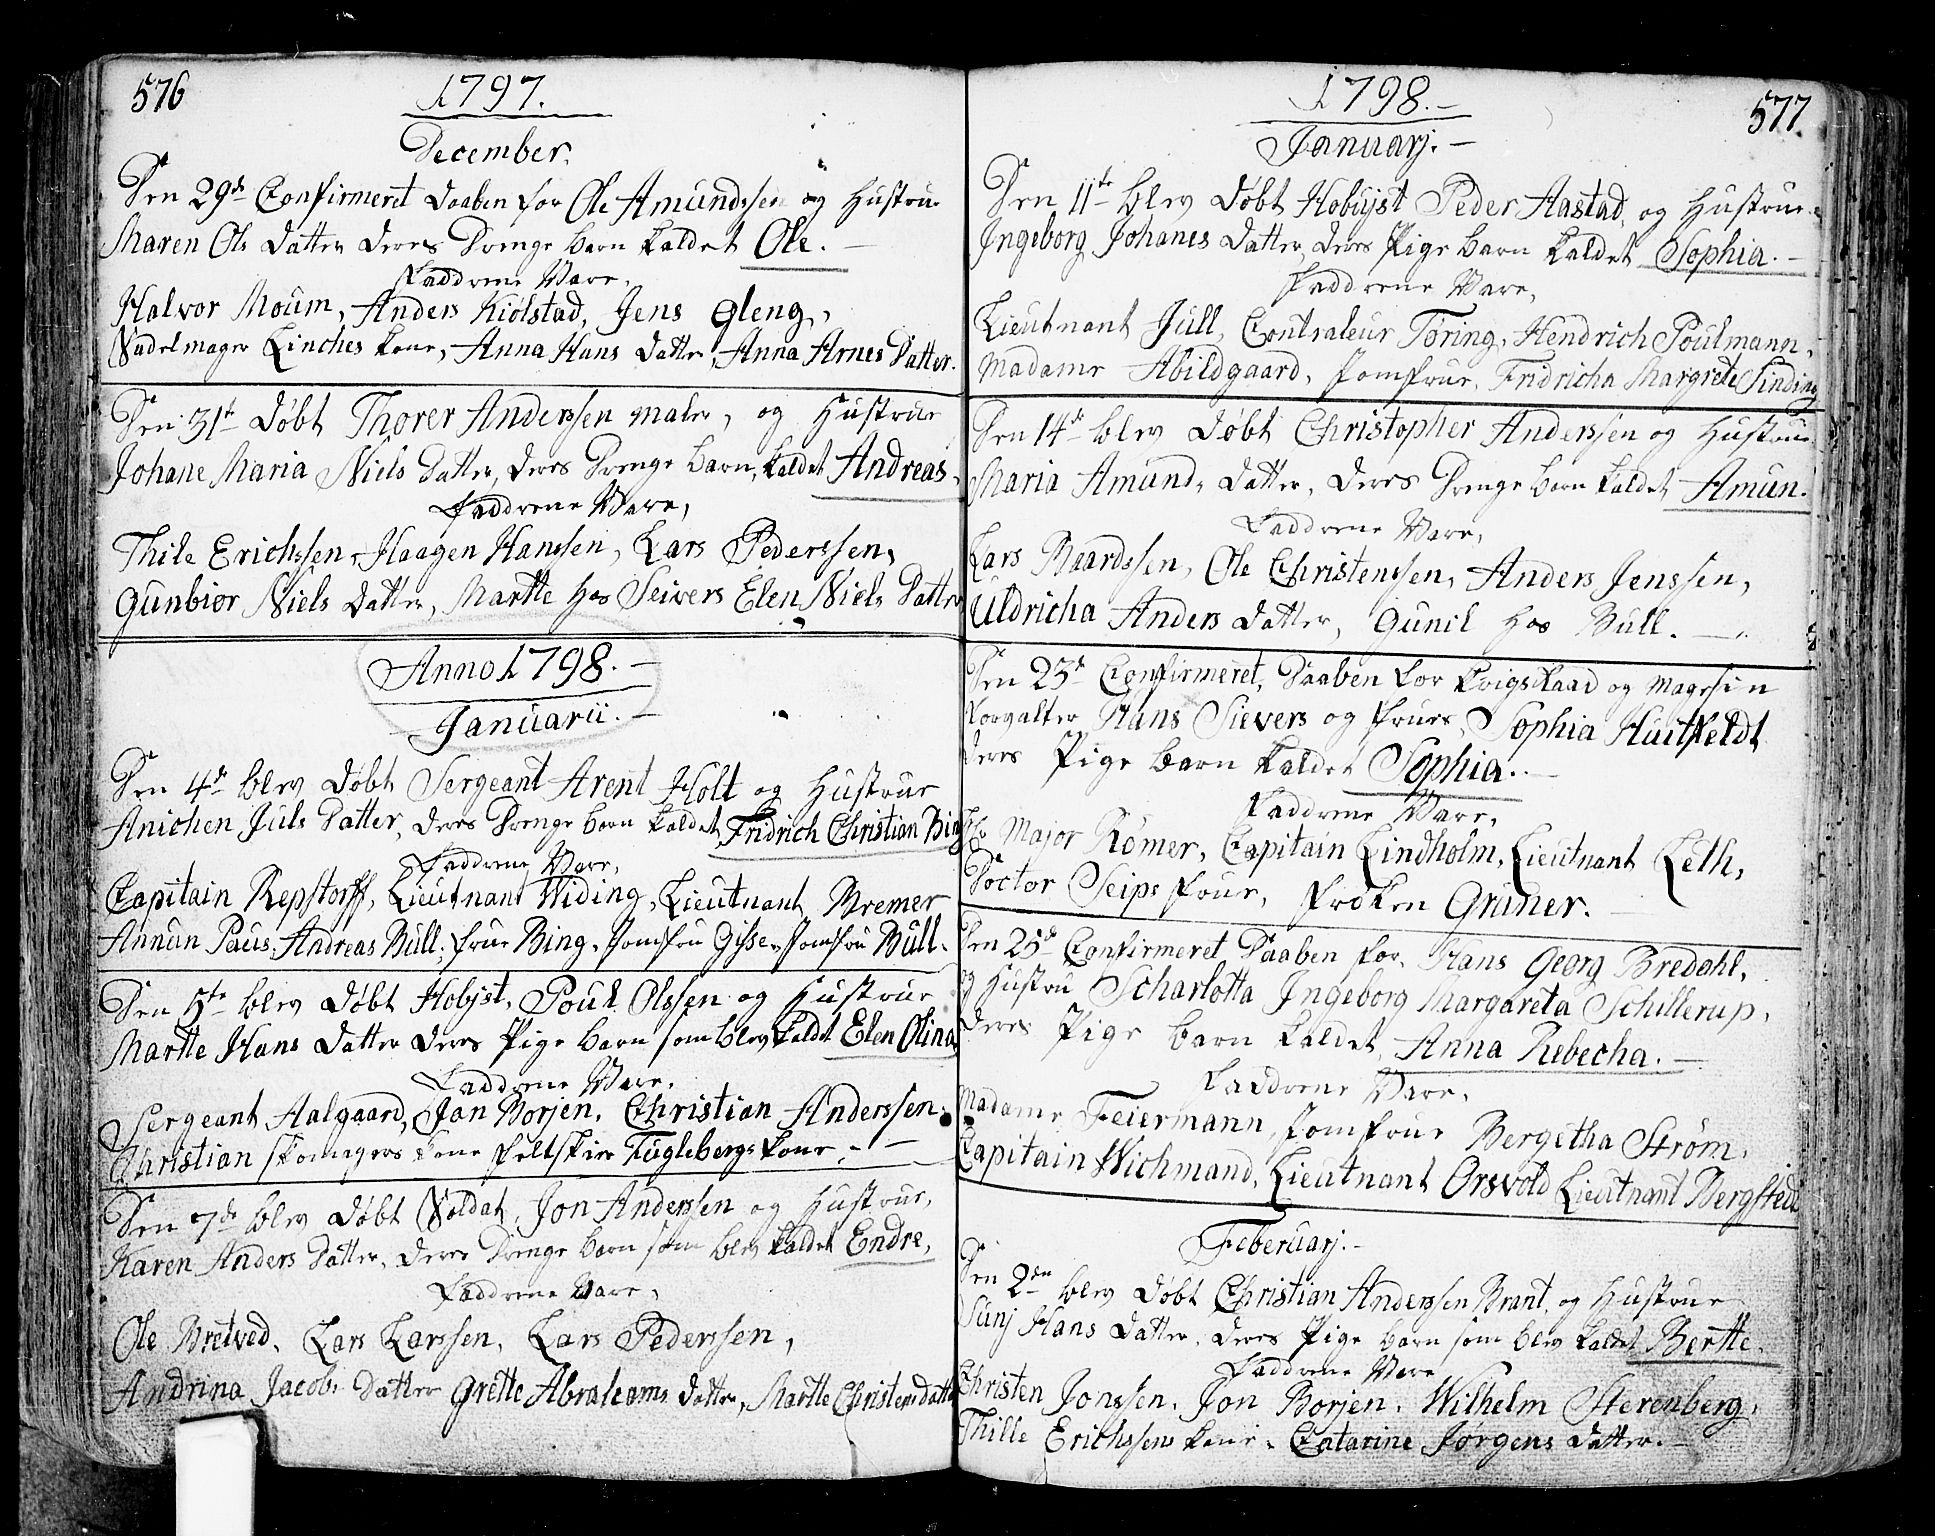 576
1797.
December.
Den 29de Confirmeret Daaben for Ole Amundssen og Hustrue
Maren Ols Datter deres Drenge barn kaldet Ole.
Faddrene Vare,
Halvor Moum, Anders Kiölstad, Jens Gleng,
Sadelmager Linches kone, Anna Hans Datter, Anna Arnes Datter.
Den 31te Døbt Thorer Anderssen maler, og Hustrue
Johane Maria Niels Datter, deres Drenge barn, kaldet Andreas.
Faddrene Vare,
Thile Erichssen, Haagen Hanssen, Lars Pederssen,
Gunbior Niels Datter, Marthe hos Seivers Elen Niels Datter
Anno 1798.
Januarii.
Den 4de blev Døbt Sergeant Arent Holt og Hustrue
Anichen Juls Datter, deres Drenge barn kaldet Fridrich Christian Bing
Faddrene Vare,
Capitain Repstorff, Lieutnant Widing, Lieutnant Bremer
Annun Paus, Andreas Bull, frue Bing, Jomfru Gisse, Jomfru Bull.
Den 5te blev Døbt Hobijst, Poul Olssen og Hustrue
Marthe Hans Datter deres Pige barn som blev kaldet Elen Olina
Faddrene Vare,
Sergeant Aalgaard, Jan Borjen, Christian Anderssen,
Christian skomagers kone feltskier Fuglebergs kone,
Den 7de blev Døbt Soldat, Jon Anderssen og Hustrue,
Karen Anders Datter, deres Drenge barn som blev kaldet Endre,
Faddrene Vare,
Ole Bretved, Lars Larssen, Lars Pederssen,
Andrina Jacobs Datter Grette Abrahams Datter, Marthe Christens datter
577.
1798.
Januarj.
Den 11te blev Døbt Hobijst Peder Aastad, og Hustrue
Ingeborg Johanes Datter, deres Pige barn kaldet Sophia.
Faddrene Vare,
Lieutnant Jull, Contraleur Tøring, Hendrich Poulmann,
Madame Abildgaard, Jomfrue, Fridricha Margrete Sinding
Den 14de blev Døbt Christopher Anderssen og Hustrue
Maria Amunds Datter, deres Drenge barn kaldet Amun.
Faddrene Vare,
Lars Baardssen, Ole Christenssen, Anders Jenssen,
Uldricha Anders Datter, Gunil hos Bull.
Den 23de Confirmeret, Daaben for krigsraad og Magesin
forvalter Hans Sievers og frues, Sophia Huitfeldt
deres Pige barn kaldet Sophia.
Faddrene Vare,
Hr Major Römer, Capitain Lindholm, Lieutnant Leth,
Doctor Seips frue, frøken Grüner.
Den 25de Confirmeret Daaben for, Hans Georg Bredahl,
og Hustru Scharlotta Ingeborg Margareta Schillerup,
deres Pige barn kaldet, Anna Rebecha.
Faddrene Vare,
Madame Feiermann, Jomfrue Bergetha Strøm,
Capitain Wichmand, Lieutnant Orsvold Lieutnant Bergstedt
Feberuarj.
Den 2den blev Døbt Christian Anderssen Brant, og Hustrue
Sunj Hans Datter, deres Pige barn som blev kaldet Berthe.
Faddrene Vare
Christen Jonssen, Jon Borjen, Wilhelm Sterenberg,
Thille Erichssens kone, Catarine Jørgens Datter.